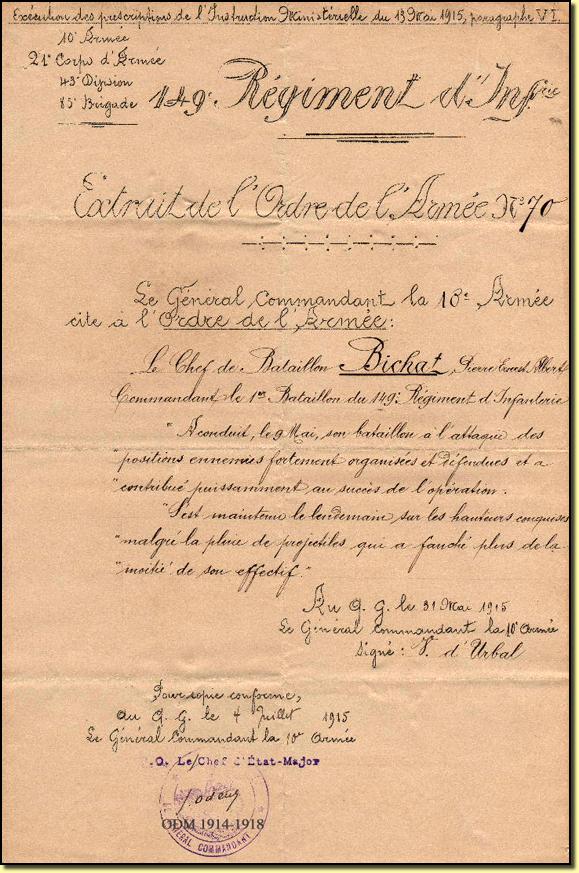 Exécution des prescriptions de l'Instruction Ministérielle du 13 Mai 1915, paragraphe VI.
10e Armée
21e Corps d'Armée
43e Division
85e Brigade
149e Régiment d'Infrie
Extrait de l'Ordre de l'Armée No 70
Le Général Commandant la 10e Armée
cite à l'Ordre de l'Armée:
Le Chef de Bataillon Bichat, Pierre Ernest Albert
Commandant le 1er Bataillon du 149e Régiment d'Infanterie
"A conduit, le 9 Mai, son bataillon à l'attaque des
"positions ennemies fortement organisées et défendues et a
"contribué puissamment au succès de l'opération.
"S'est maintenu le lendemain sur les hauteurs conquises
"malgré la pluie de projectiles qui a fauché plus de la
"moitié de son effectif."
Au Q. G. le 31 Mai 1915
Le Général Commandant la 10e Armée
Signé: V. d'Urbal
Pour copie conforme,
au Q. G. le 4 Juillet 1915
Le Général Commandant la 10e Armée
.O. Le Chef d'État-Major
ODM 1914-1918
GÉNÉRAL COMMANDANT